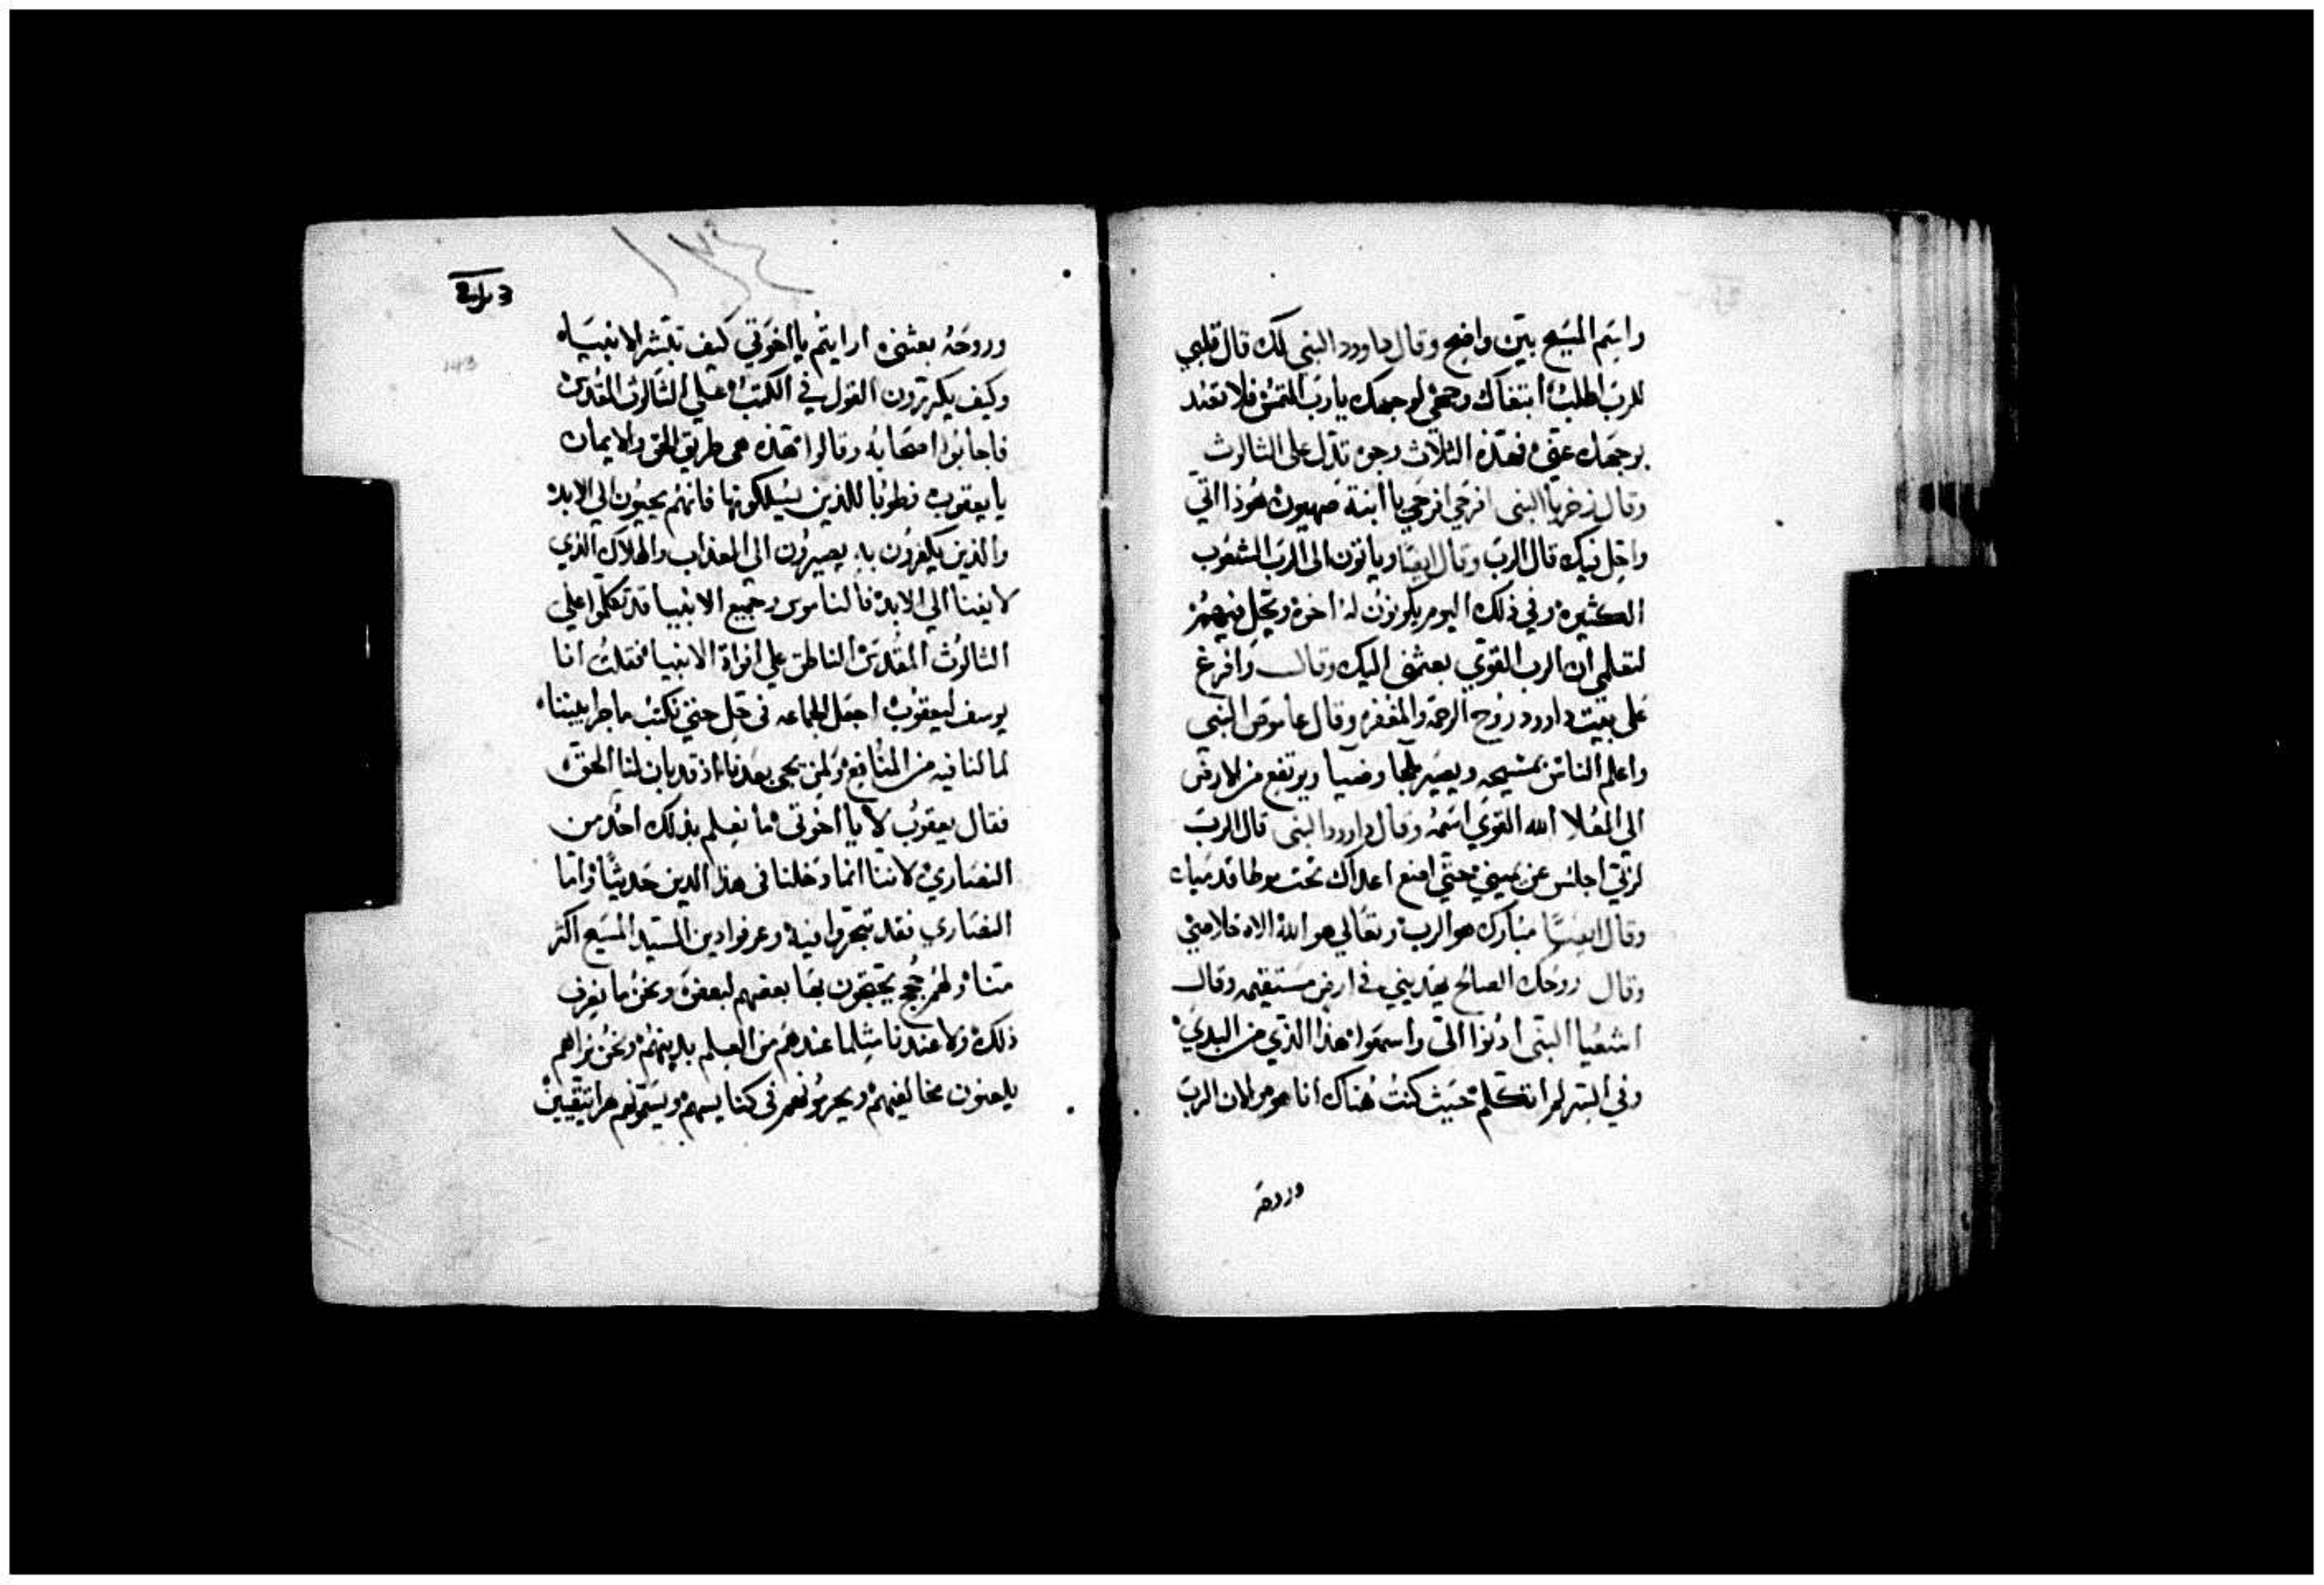 واسم المسيح بين واضح وقال داوود النبي لك قال قلبي
للرب اطلب ابتغاك وجهي لوجهك يارب التمس فلا تفند
بوجهك عني فهذه الثلاث وجوه تدل على الثالوث
وقال زخريا النبي افرحي افرحي يا ابنة صهيون هوذا اتي
واحل فيك قال الرب وقال ايضا وياتون الى الرب الشعوب
الكثيره وفي ذلك اليوم يكونون له اخوه ويحل فيهم
لتعلمي ان الرب القوي بعثني اليك وقال وافرغ
على بيت داوود روح الرحمه والمغفره وقال عاموص النبي
واعلم الناس بمسيحه ويصير ملجا وضيا ويرتفع من الارض
الي العلا الله القوي اسمه وقال داوود النبي قال الرب
لربي اجلس عن يميني حتي اضع اعداك تحت موطا قدميك
وقال ايضا مبارك هو الرب وتعالي هو الله الاه خلاصي
وقال روحك الصالح يهديني في ارض مستقيمه وقال
اشعيا النبي ادنوا الي واسمعوا هذا الذي من البدي
وفي السر لم اتكلم حيث كنت هناك انا هو والان الرب
وروحه
وروحه بعثني ارايتم يا اخوتي كيف تبشر الانبياء
وكيف يكررون القول في الكتب علي الثالوث المقدس
فاجابوا اصحابه وقالوا هذه هي طريق الحق والايمان
يا يعقوب فطوبا للذين يسلكونها فانهم يحيون الي الابد
والذين يكفرون به يصيرون الي العذاب والهلاك الذي
لا يفنا الي الابد فالناموس وجميع الانبيا قد تكلموا علي
الثالوث المقدس الناطق علي افواه الانبيا فقلت انا
يوسف ليعقوب اجعل الجماعه في حل حتي نكتب ما جرا بيننا
لما لنا فيه من المنافع ولمن يجي بعدنا اذ قد بان لنا الحق
فقال يعقوب لا يا اخوتي ما يعلم بذلك احد من
النصاري لاننا انما دخلنا في هذا الدين حديثا واما
النصاري فقد تبحروا فيه وعرفوا دين السيد المسيح اكثر
منا ولهم حجج يحتجون بها بعضهم لبعض ونحن ما نعرف
ذلك ولا عندنا مثلما عندهم من العلم بدينهم ونحن نراهم
يلعنون مخالفيهم ويحرمونهم في كنايسهم ويسمونهم هراتيقيين